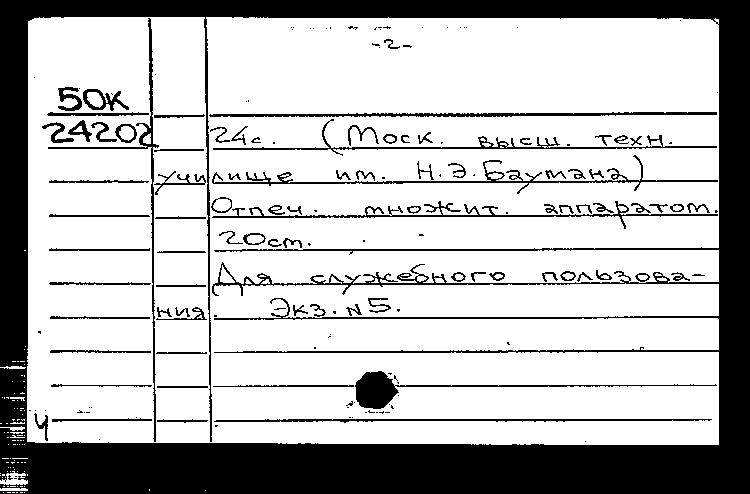 -2-
50К
24202 24с. (Моск. высш. техн.
училище им. Н.Э.Баумана)
Отпеч. множит. аппаратом.
20см.
Для служебного пользова-
ния. Экз. N5.
Ч